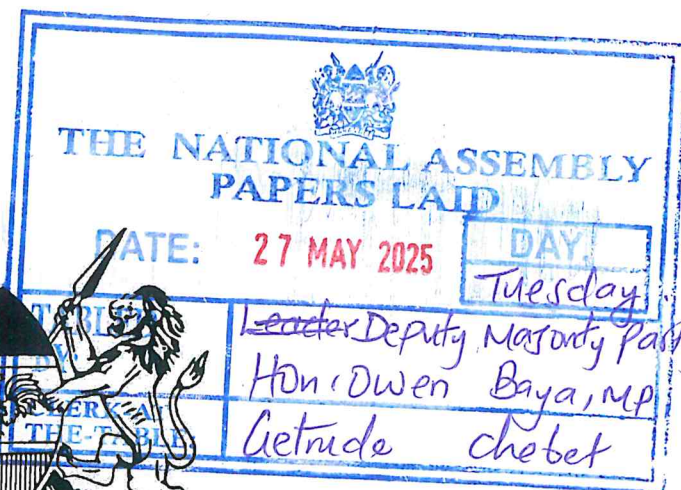 THE NATIONAL ASSEMBLY
PAPERS LAID
DATE: 27 MAY 2025 DAY.
Tuesday.
TABLED Leader Deputy Majority Part
BY: Hon. Owen Baya, MP
CLERK AT
THE-TABLE: Getrude Chebet